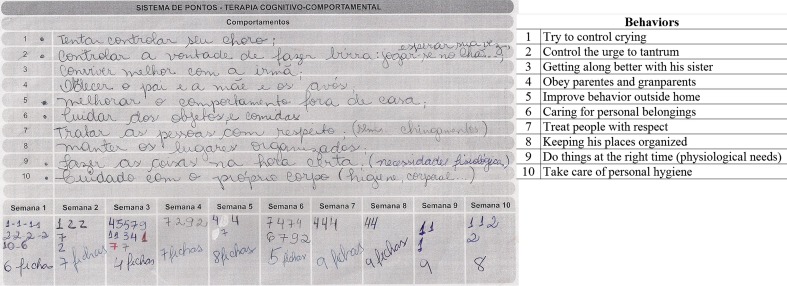 SISTEMA DE PONTOS - TERAPIA COGNITIVO-COMPORTAMENTAL
Comportamentos
1 • Tentar controlar seu choro;
esperar sua vez,
2 • Controlar a vontade de fazer birra: jogar-se no chão...;
3 Conviver melhor com a irmã;
4 Obedecer o pai e a mãe e os avós;
5 • melhorar o comportamento fora de casa;
6 • Cuidar dos objetos e comidas
7 Tratar as pessoas com respeito; (sem xingamentos)
8 manter os lugares organizados;
9 • fazer as coisas na hora certa; (necessidades fisiológicas)
10 • Cuidado com o próprio corpo (higiene corporal...)
Semana 1 Semana 2 Semana 3 Semana 4 Semana 5 Semana 6 Semana 7 Semana 8 Semana 9 Semana 10
1-1-1-1 1 2 2 45579 7292 4 4 7474 444 44 11 112
2-2-2-2 7 11341 7 6792 1 2
10-6 2 77
6 fichas 7 fichas 4 fichas 7 fichas 8 fichas 5 fichas 9 fichas 9 fichas 9 8
Behaviors
1 Try to control crying
2 Control the urge to tantrum
3 Getting along better with his sister
4 Obey parentes and granparents
5 Improve behavior outside home
6 Caring for personal belongings
7 Treat people with respect
8 Keeping his places organized
9 Do things at the right time (physiological needs)
10 Take care of personal hygiene